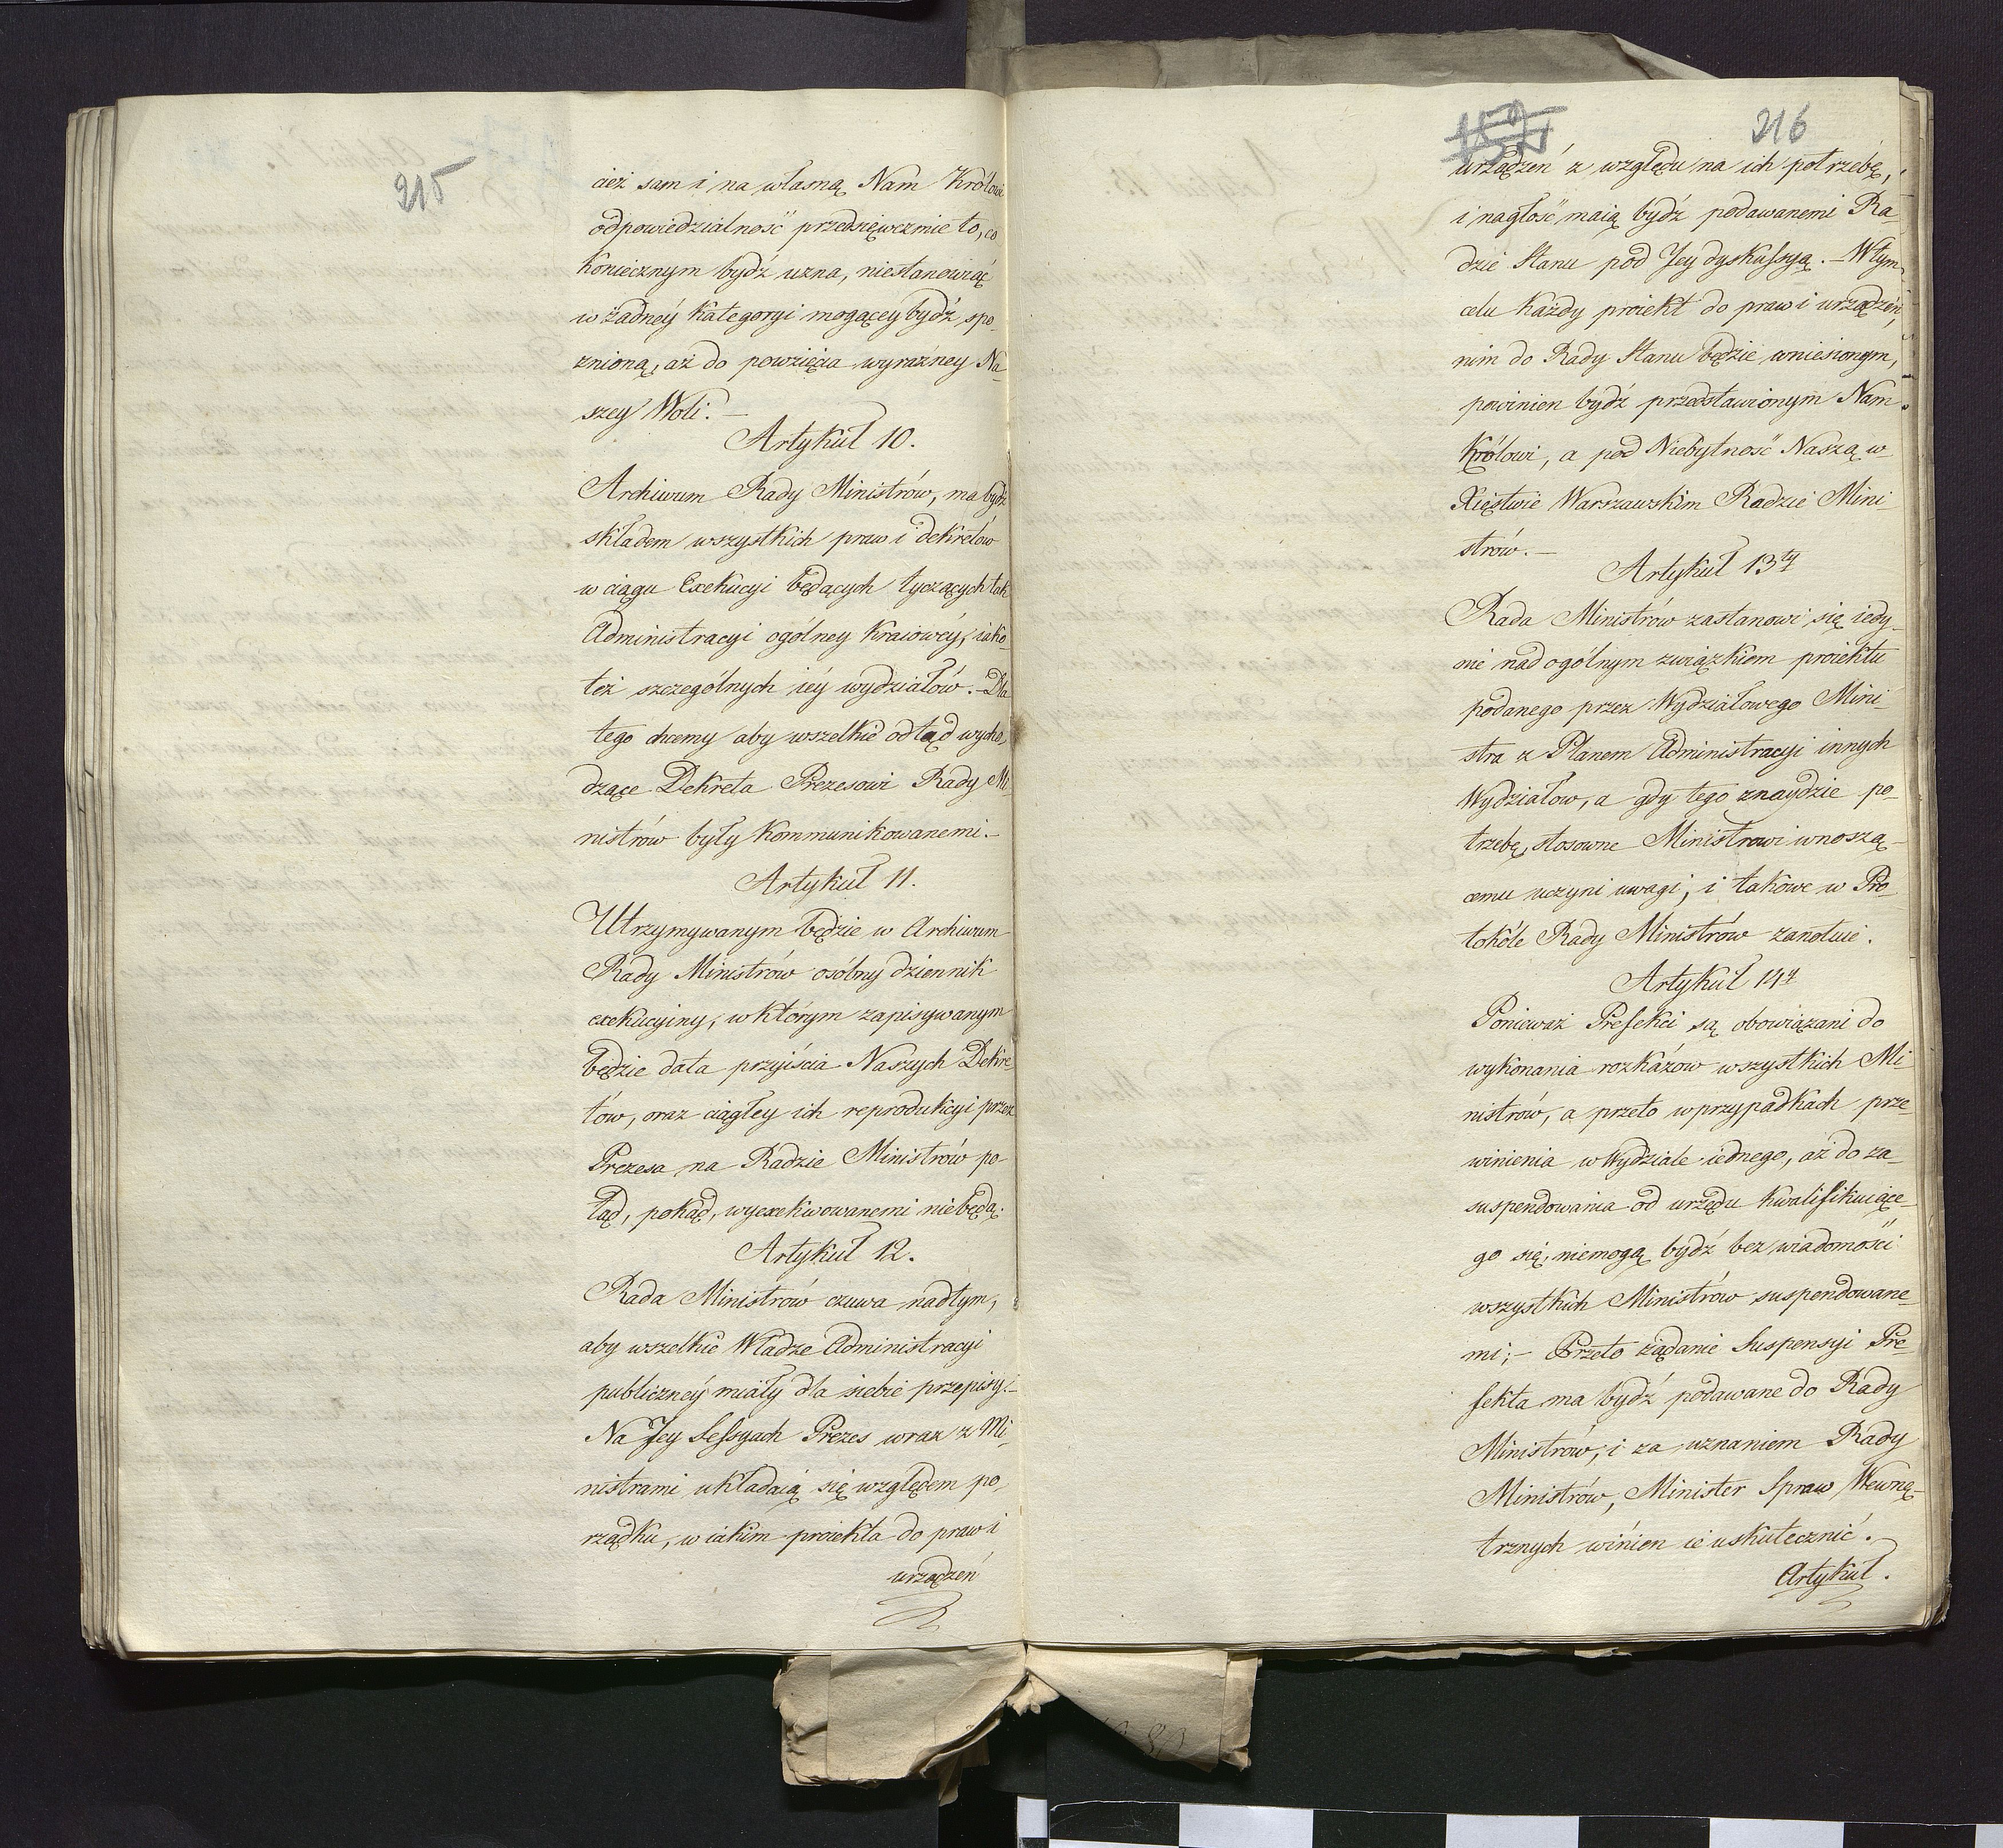 215
cież sam i na własną Nam Królowi
odpowiedzialność przedsięwezmie to, co
koniecznym bydź uzna, niestanowiąć
w żadnéy kategoryi mogącey bydź spo-
znioną, aż do powzięcia wyraźney Na-
szey Woli. –
Artykuł 10.
Archiwum Rady Ministrów, ma bydź
składem wszystkich praw i dekretów
w ciągu Exekucyi będących tyczących tak
Administracyi ogólney kraiowéy, iako-
też szczególnych iéy wydziałów. – Dla
tego chcemy aby wszelkie odtąd wycho-
dzące Dekreta Prezesowi Rady Mi-
nistrów były kommunikowanemi. –
Artykuł 11.
Utrzymywanym będzie w Archiwum
Rady Ministrów osóbny dziennik
exekucyiny, w którym zapisywanym
będzie data przyiścia Naszych Dekre-
tów, oraz ciągłey ich reprodukcyi przez
Prezesa na Radzie Ministrów po-
tąd, pokąd, wyexekwowanemi niebędą.
Artykuł 12.
Rada Ministrów czuwa nad tym,
aby wszelkie Władze Administracyi
publicznéy miały dla siebie przepisy. –
Na Jey Sessyach Prezes wraz z Mi-
nistrami układaią się względem po-
rządku, w iakim proiekta do praw i
urządzeń
216
urządzeń z względu na ich potrzebę,
i nagłość maią bydź podawanemi Ra-
dzie Stanu pod Jey dyskussyą. – W tym
celu każdy proiekt do praw i urządzeń,
nim do Rady Stanu będzie wniesionym,
powinien bydź przedstawionym Nam
Królowi, a pod Niebytność Naszą w
Xięstwie Warszawskim Radzie Mini-
strów. –
Artykuł 13ty
Rada Ministrów zastanowi się iedy-
nie nad ogólnym związkiem proiektu
podanego przez Wydziałowego Mini-
stra z Planem Administracyi innych
Wydziałow, a gdy tego znaydzie po-
trzebę, stosowne Ministrowi wnoszą-
cemu uczyni uwagi, i takowe w Pro-
tokóle Rady Ministrów zanotuie.
Artykuł 14y
Ponieważ Prefekci są obowiązani do
wykonania rozkázow wszystkich Mi-
nistrów, a przeto w przypadkach prze-
winienia w Wydziale iednego, aż do za-
suspendowania od urzędu kwalifikuiące-
go się, niemogą bydź bez wiadomości
wszystkich Ministrów suspendowane-
mi; – Przeto żądanie Suspensyi Pre-
fekta ma bydź podawane do Rady
Ministrów, i za uznaniem Rady
Ministrów, Minister Spraw Wewnę-
trznych winien ie uskutecznić. –
Artykuł.